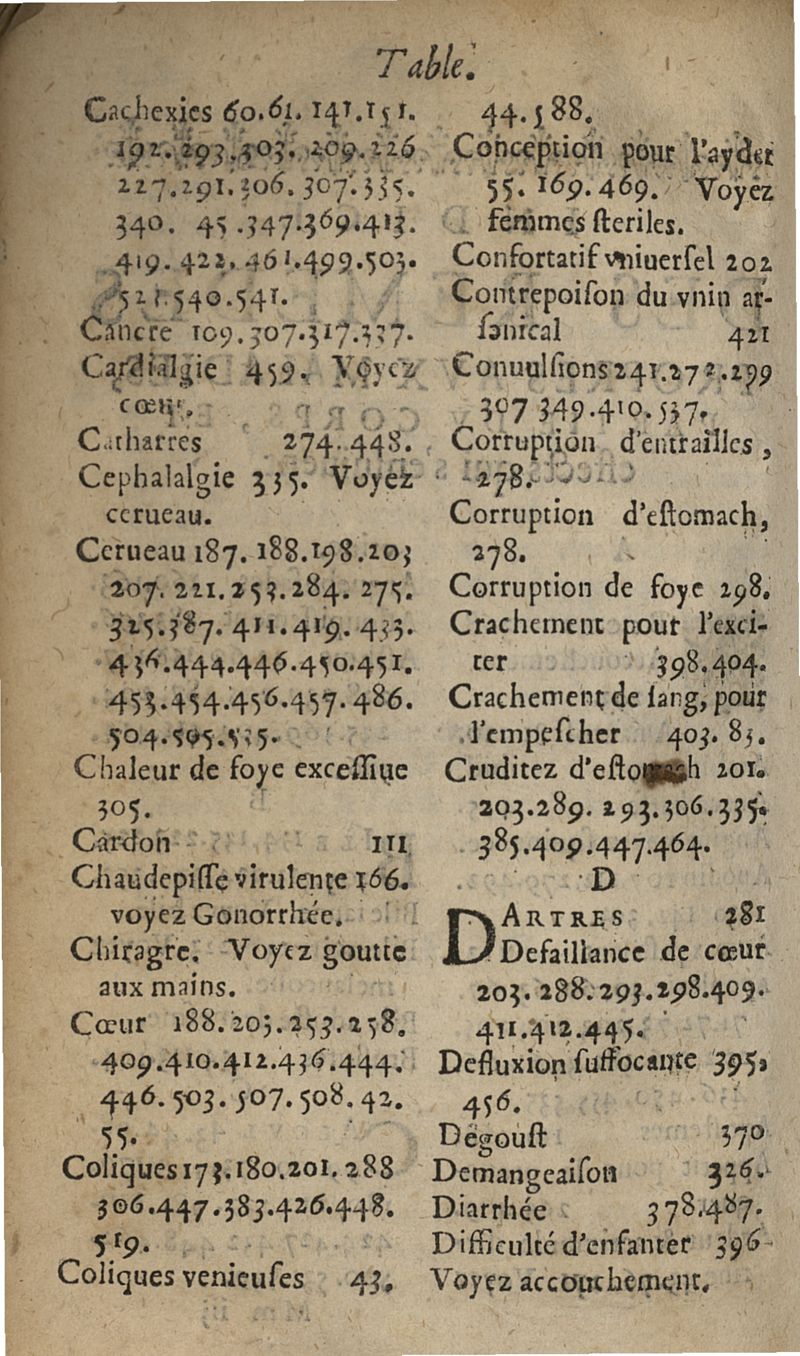 Table.
Cachexies 60.61. 141.151.
192.293.303. 209.226
227.291.306. 307.335.
340. 45 .347.369.413.
419. 422. 461.499.503.
521.540.541.
Cancre 109.307.317.337.
Cardialgie 459. Voyez
cœur.
Catharres 274.448.
Cephalalgie 335. Voyez
cerueau.
Cerueau 187. 188.198.203
207. 221.253.284. 275.
325.387. 411.419. 433.
436.444.446.450.451.
453.454.456.457.486.
504.505.535.
Chaleur de foye exceſſiue
305.
Cardon 111
Chaudepiſſe virulente 166.
voyez Gonorrhée.
Chiragre. Voyez goutte
aux mains.
Cœur 188.203.253.258.
409.410.412.436.444.
446.503.507.508.42.
55.
Coliques 173.180.201.288
306.447.383.426.448.
519.
Coliques venieuſes 43.
44.588.
Conception pour l'ayder
55. 169.469. Voyez
femmes ſteriles.
Confortatif vniuerſel 202
Contrepoiſon du vnin ar-
ſenical 421
Conuulſions 241.272.299
307 349.410.537.
Corruption d'entrailles,
278.
Corruption d'eſtomach,
278.
Corruption de foye 298.
Crachement pour l'exci-
ter 398.404.
Crachement de ſang, pour
l'empeſcher 403. 83.
Cruditez 201.
203.289. 293.306.335.
385.409.447.464.
D
DARTRES 281
Defaillance de cœur
203. 288.293.298.409.
411.412.445.
Defluxion ſuffocante 395,
456.
Dégouſt 370
Demangeaiſon 326.
Diarrhée 378.487.
Difficulté d'enfanter 396
Voyez accouchement.